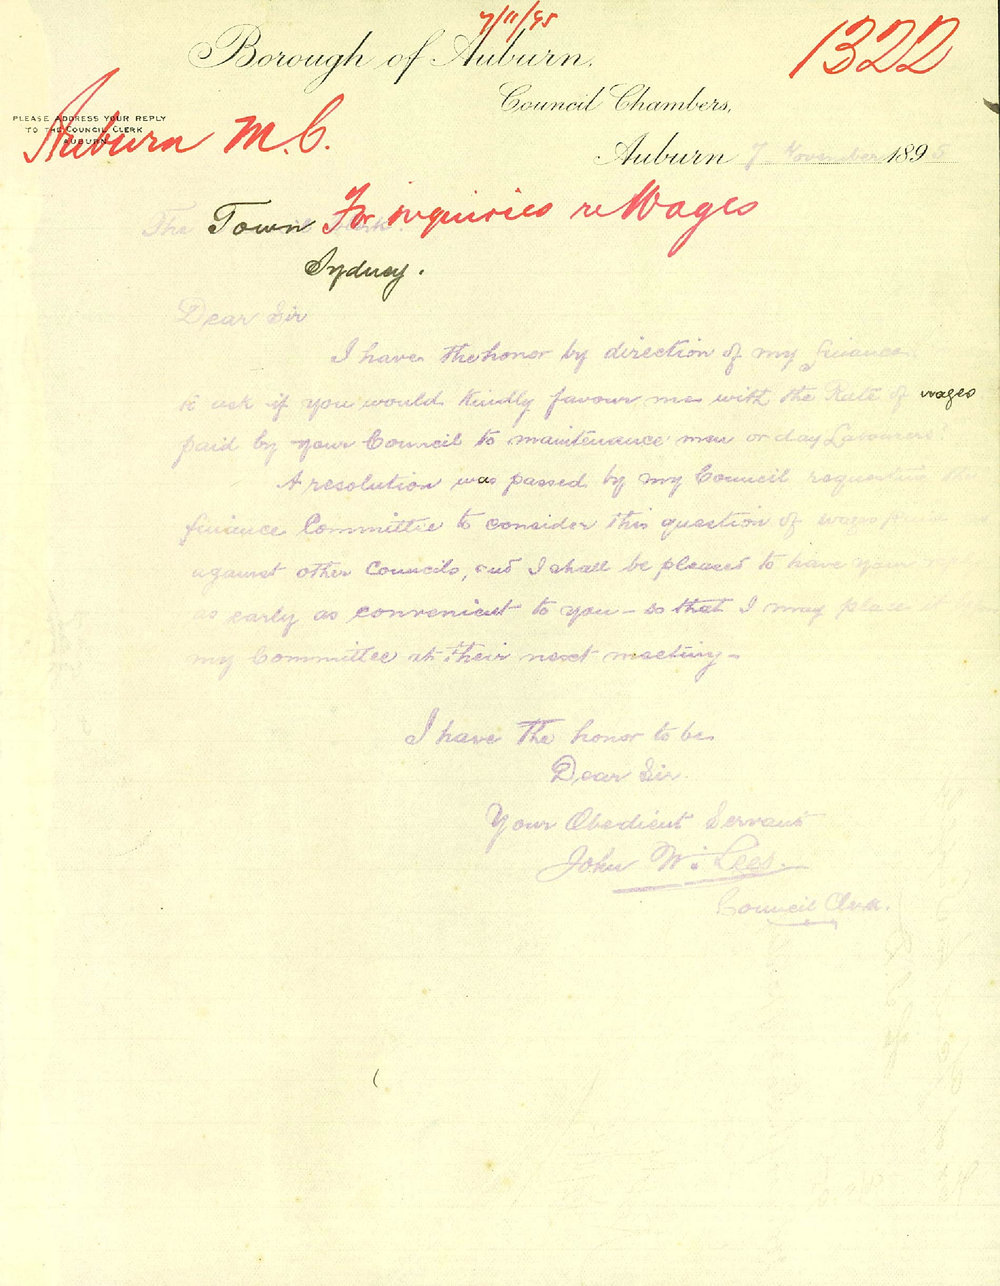 7/11/95
Borough of Auburn.
1322
Council Chambers,
PLEASE ADDRESS YOUR REPLY
TO THE COUNCIL CLERK
AUBURN
Auburn M.C.
Auburn 7 November 1895
For inquiries re Wages
The Town Clerk.
Sydney.
Dear Sir
I have the honor by direction of my finance
to ask if you would kindly favour me with the Rate of wages
paid by your Council to maintenance men or day Labourers?
A resolution was passed by my Council requesting the
finance Committee to consider this question of wages paid as
against other Councils, and I shall be pleased to have your
as early as convenient to you – so that I may place it
my Committee at their next meeting –
I have the honor to be
Dear Sir
Your Obedient Servant
John W. Lees.
Council Clerk.